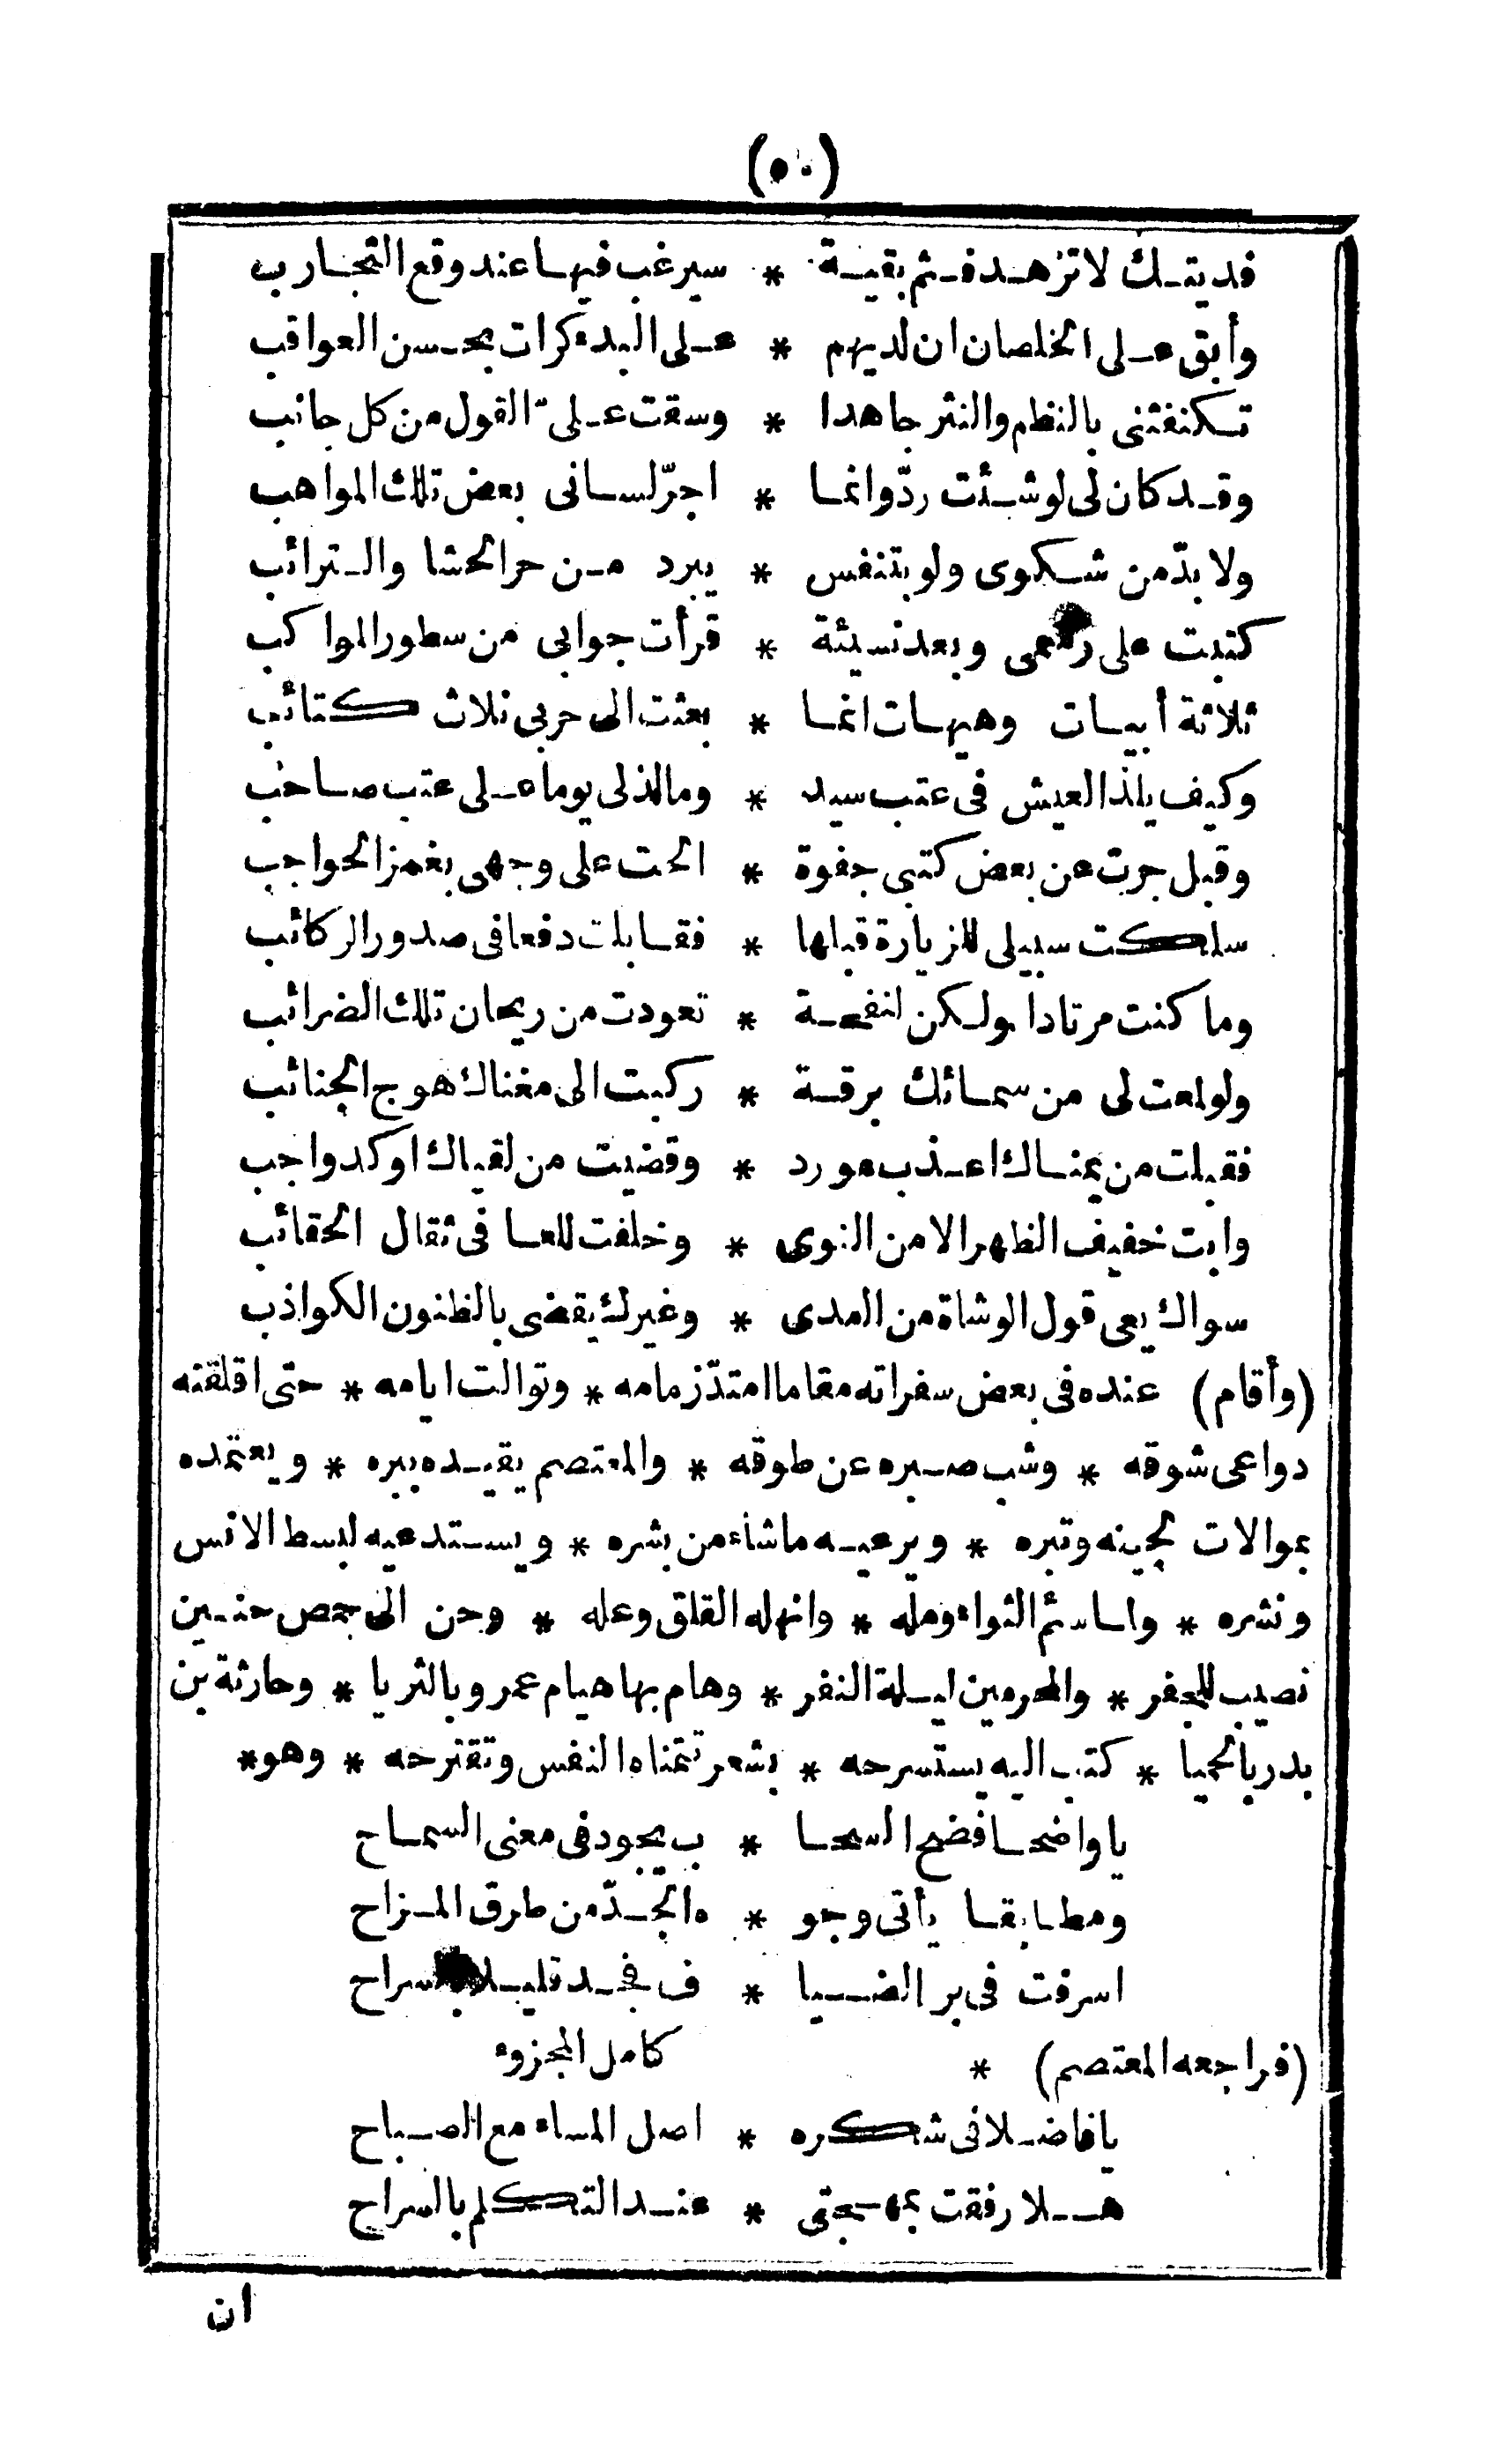 (٥٠)
فديتك لا تزهد فثم بقية * سيرغب فيها عند وقع التجارب
وأبق على الخلصان ان لديهم * على البدء كرات بحسن العواقب
تكنفتنى بالنظم والنثر جاهدا * وسقت علىّ القول من كل جانب
وقد كان لى لو شئت ردّ وانما * اجرّ لسانى بعض تلك المواهب
ولا بدّ من شكوى ولو بتنفس * يبرد من حر الحشا والترائب
كتبت على رسمى وبعد نسيئة * قرأت جوابى من سطور المواكب
ثلاثة أبيات وهيهات انما * بعثت الى حربى ثلاث كتائب
وكيف يلذ العيش فى عتب سيد * وما لذ لى يوما على عتب صاحب
وقبل جرت عن بعض كتبى جفوة * الحت على وجهى بغمز الحواجب
سلكت سبيلى للزيارة قبلها * فقابلت دفعا فى صدور الركائب
وما كنت مرتادا ولكن لنفحة * تعودت من ريحان تلك الضرائب
ولو لمعت لى من سمائك برقة * ركبت الى مغناك هوج الجنائب
فقبلت من يمناك اعذب مورد * وقضيت من لقياك اوكد واجب
وابت خفيف الظهر الا من النوى * وخلفت للعافى ثقال الحقائب
سواك يعى قول الوشاة من المدى * وغيرك يقضى بالظنون الكواذب
(وأقام) عنده فى بعض سفراته مقاما امتدّ زمامه * وتوالت ايامه * حتى اقلقته
دواعى شوقه * وشب صبره عن طوقه * والمعتصم يقيده ببره * ويعتمده
بموالات لجينه وتبره * ويرعيه ما شاء من بشره * ويستدعيه لبسط الانس
ونشره * ولما سئم الثواء ومله * وانهله القلق وعله * وحن الى حمص حنين
نصيب للجفر * والمحرمين ليلة النفر * وهام بها هيام عمرو بالثريا * وحارثة بن
بدر بالحميا * كتب اليه يستسرحه * بشعر تتمناه النفس وتقترحه * وهو *
يا واضحا فضح السحا * ب يجود فى معنى السماح
ومطابقا يأتى وجو * ه الجدّ من طرق المزاح
اسرفت فى بر الضيا * ف فجد قليلا بالسراح
(فراجعه المعتصم) * كامل المجزوء
يا فاضلا فى شكره * اصل المساء مع الصباح
هلا رفقت بمهجتى * عند التكلم بالسراح
ان